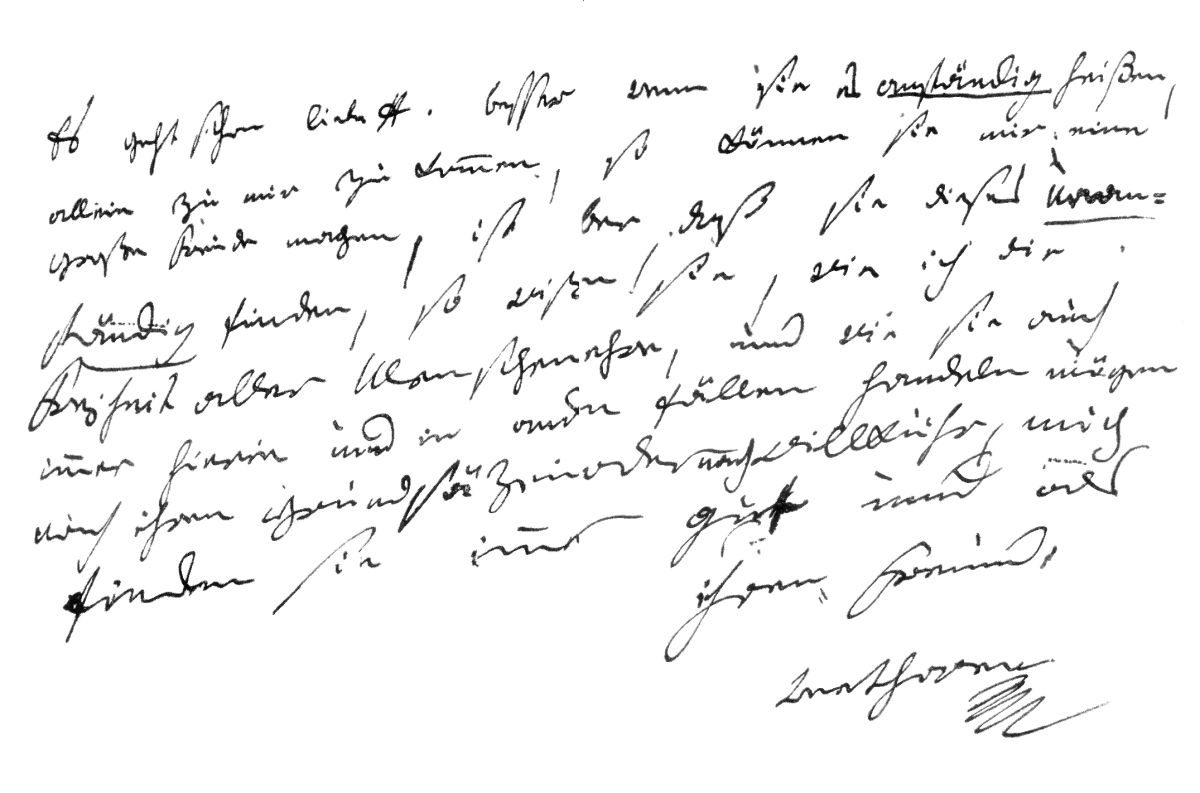 Es geht schon liebe F. besser – wenn sie es anständig heißen,
allein zu mir zu kommen, so können sie mir eine
große Freude machen, ist aber daß sie dieses unan=
ständig finden, so wißen sie, wie ich die
Freiheit aller Menschen ehre, und wie sie auch
immer hierin und in andern fällen handeln mögen
nach ihren Grundsäzen oder nach willkühr, mich
finden sie immer gut und als
ihren Freund
Beethoven